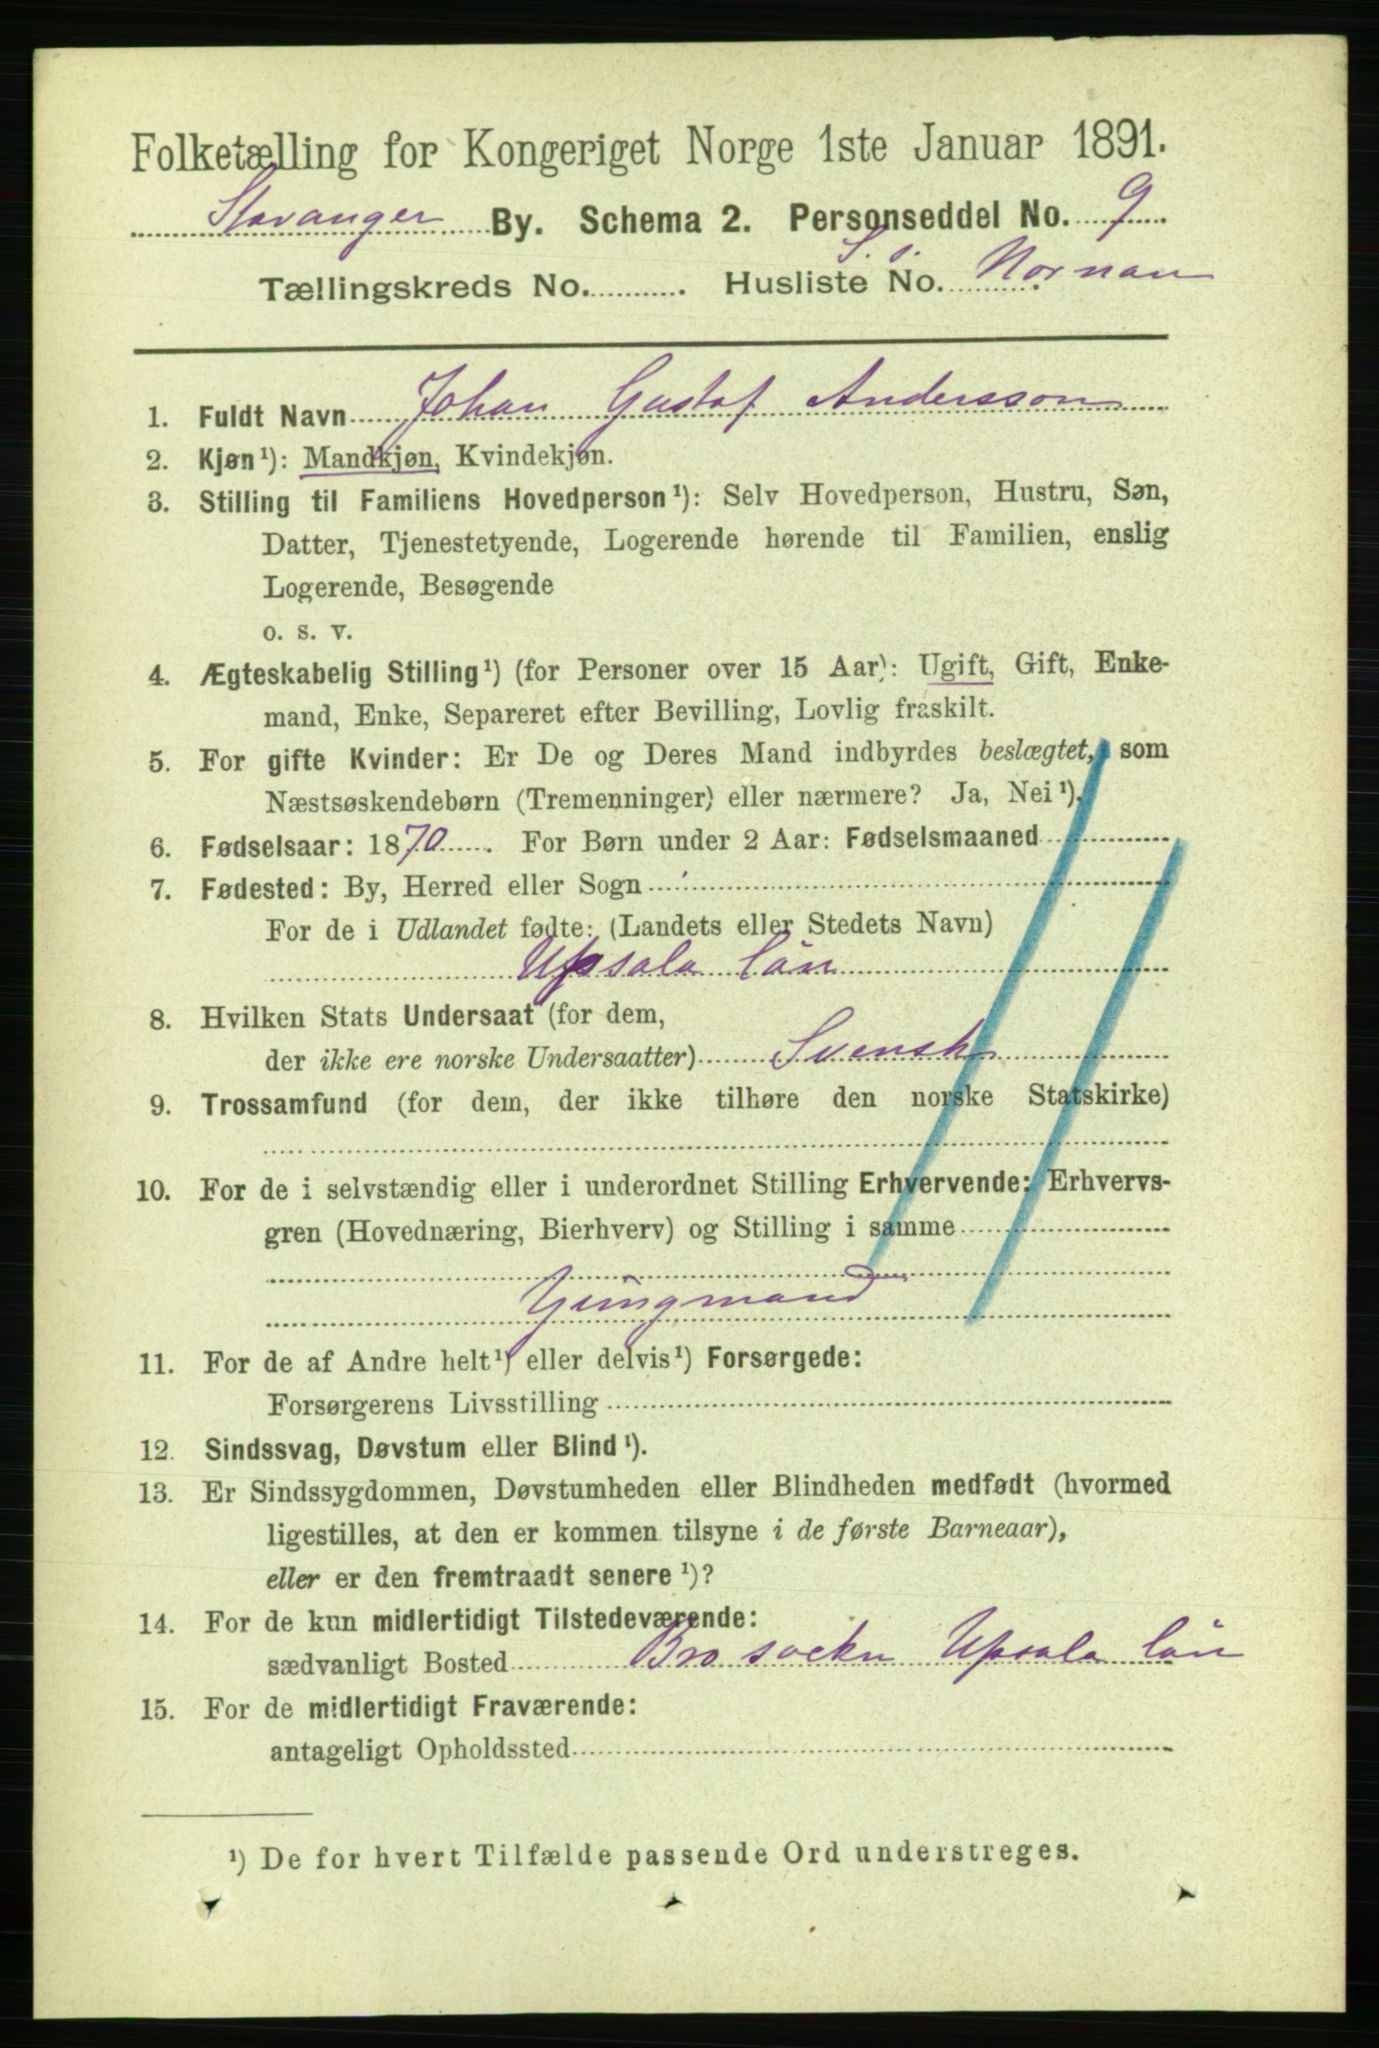 Folketælling for Kongeriget Norge 1ste Januar 1891.
Stavanger By. Schema 2. Personseddel No. 9
Tællingskreds No. . Husliste No. S. s. Nornan
1. Fuldt Navn Johan Gustaf Andersson
2. Kjøn¹): Mandkjøn, Kvindekjøn.
3. Stilling til Familiens Hovedperson¹): Selv Hovedperson, Hustru, Søn,
Datter, Tjenestetyende, Logerende hørende til Familien, enslig
Logerende, Besøgende
o. s. v.
4. Ægteskabelig Stilling¹) (for Personer over 15 Aar): Ugift, Gift, Enke-
mand, Enke, Separeret efter Bevilling, Lovlig fraskilt.
5. For gifte Kvinder: Er De og Deres Mand indbyrdes beslægtet, som
Næstsøskendebørn (Tremenninger) eller nærmere? Ja, Nei¹).
6. Fødselsaar: 1870. For Børn under 2 Aar: Fødselsmaaned
7. Fødested: By, Herred eller Sogn
For de i Udlandet fødte: (Landets eller Stedets Navn)
Upsala län
8. Hvilken Stats Undersaat (for dem,
der ikke ere norske Undersaatter) Svensk
9. Trossamfund (for dem, der ikke tilhøre den norske Statskirke)
10. For de i selvstændig eller i underordnet Stilling Erhvervende: Erhvervs-
gren (Hovednæring, Bierhverv) og Stilling i samme
Yüngmand
11. For de af Andre helt¹) eller delvis¹) Forsørgede:
Forsørgerens Livsstilling
12. Sindssvag, Døvstum eller Blind¹).
13. Er Sindssygdommen, Døvstumheden eller Blindheden medfødt (hvormed
ligestilles, at den er kommen tilsyne i de første Barneaar),
eller er den fremtraadt senere¹)?
14. For de kun midlertidigt Tilstedeværende:
sædvanligt Bosted Bro sockn Upsala län
15. For de midlertidigt Fraværende:
antageligt Opholdssted
¹) De for hvert Tilfælde passende Ord understreges.